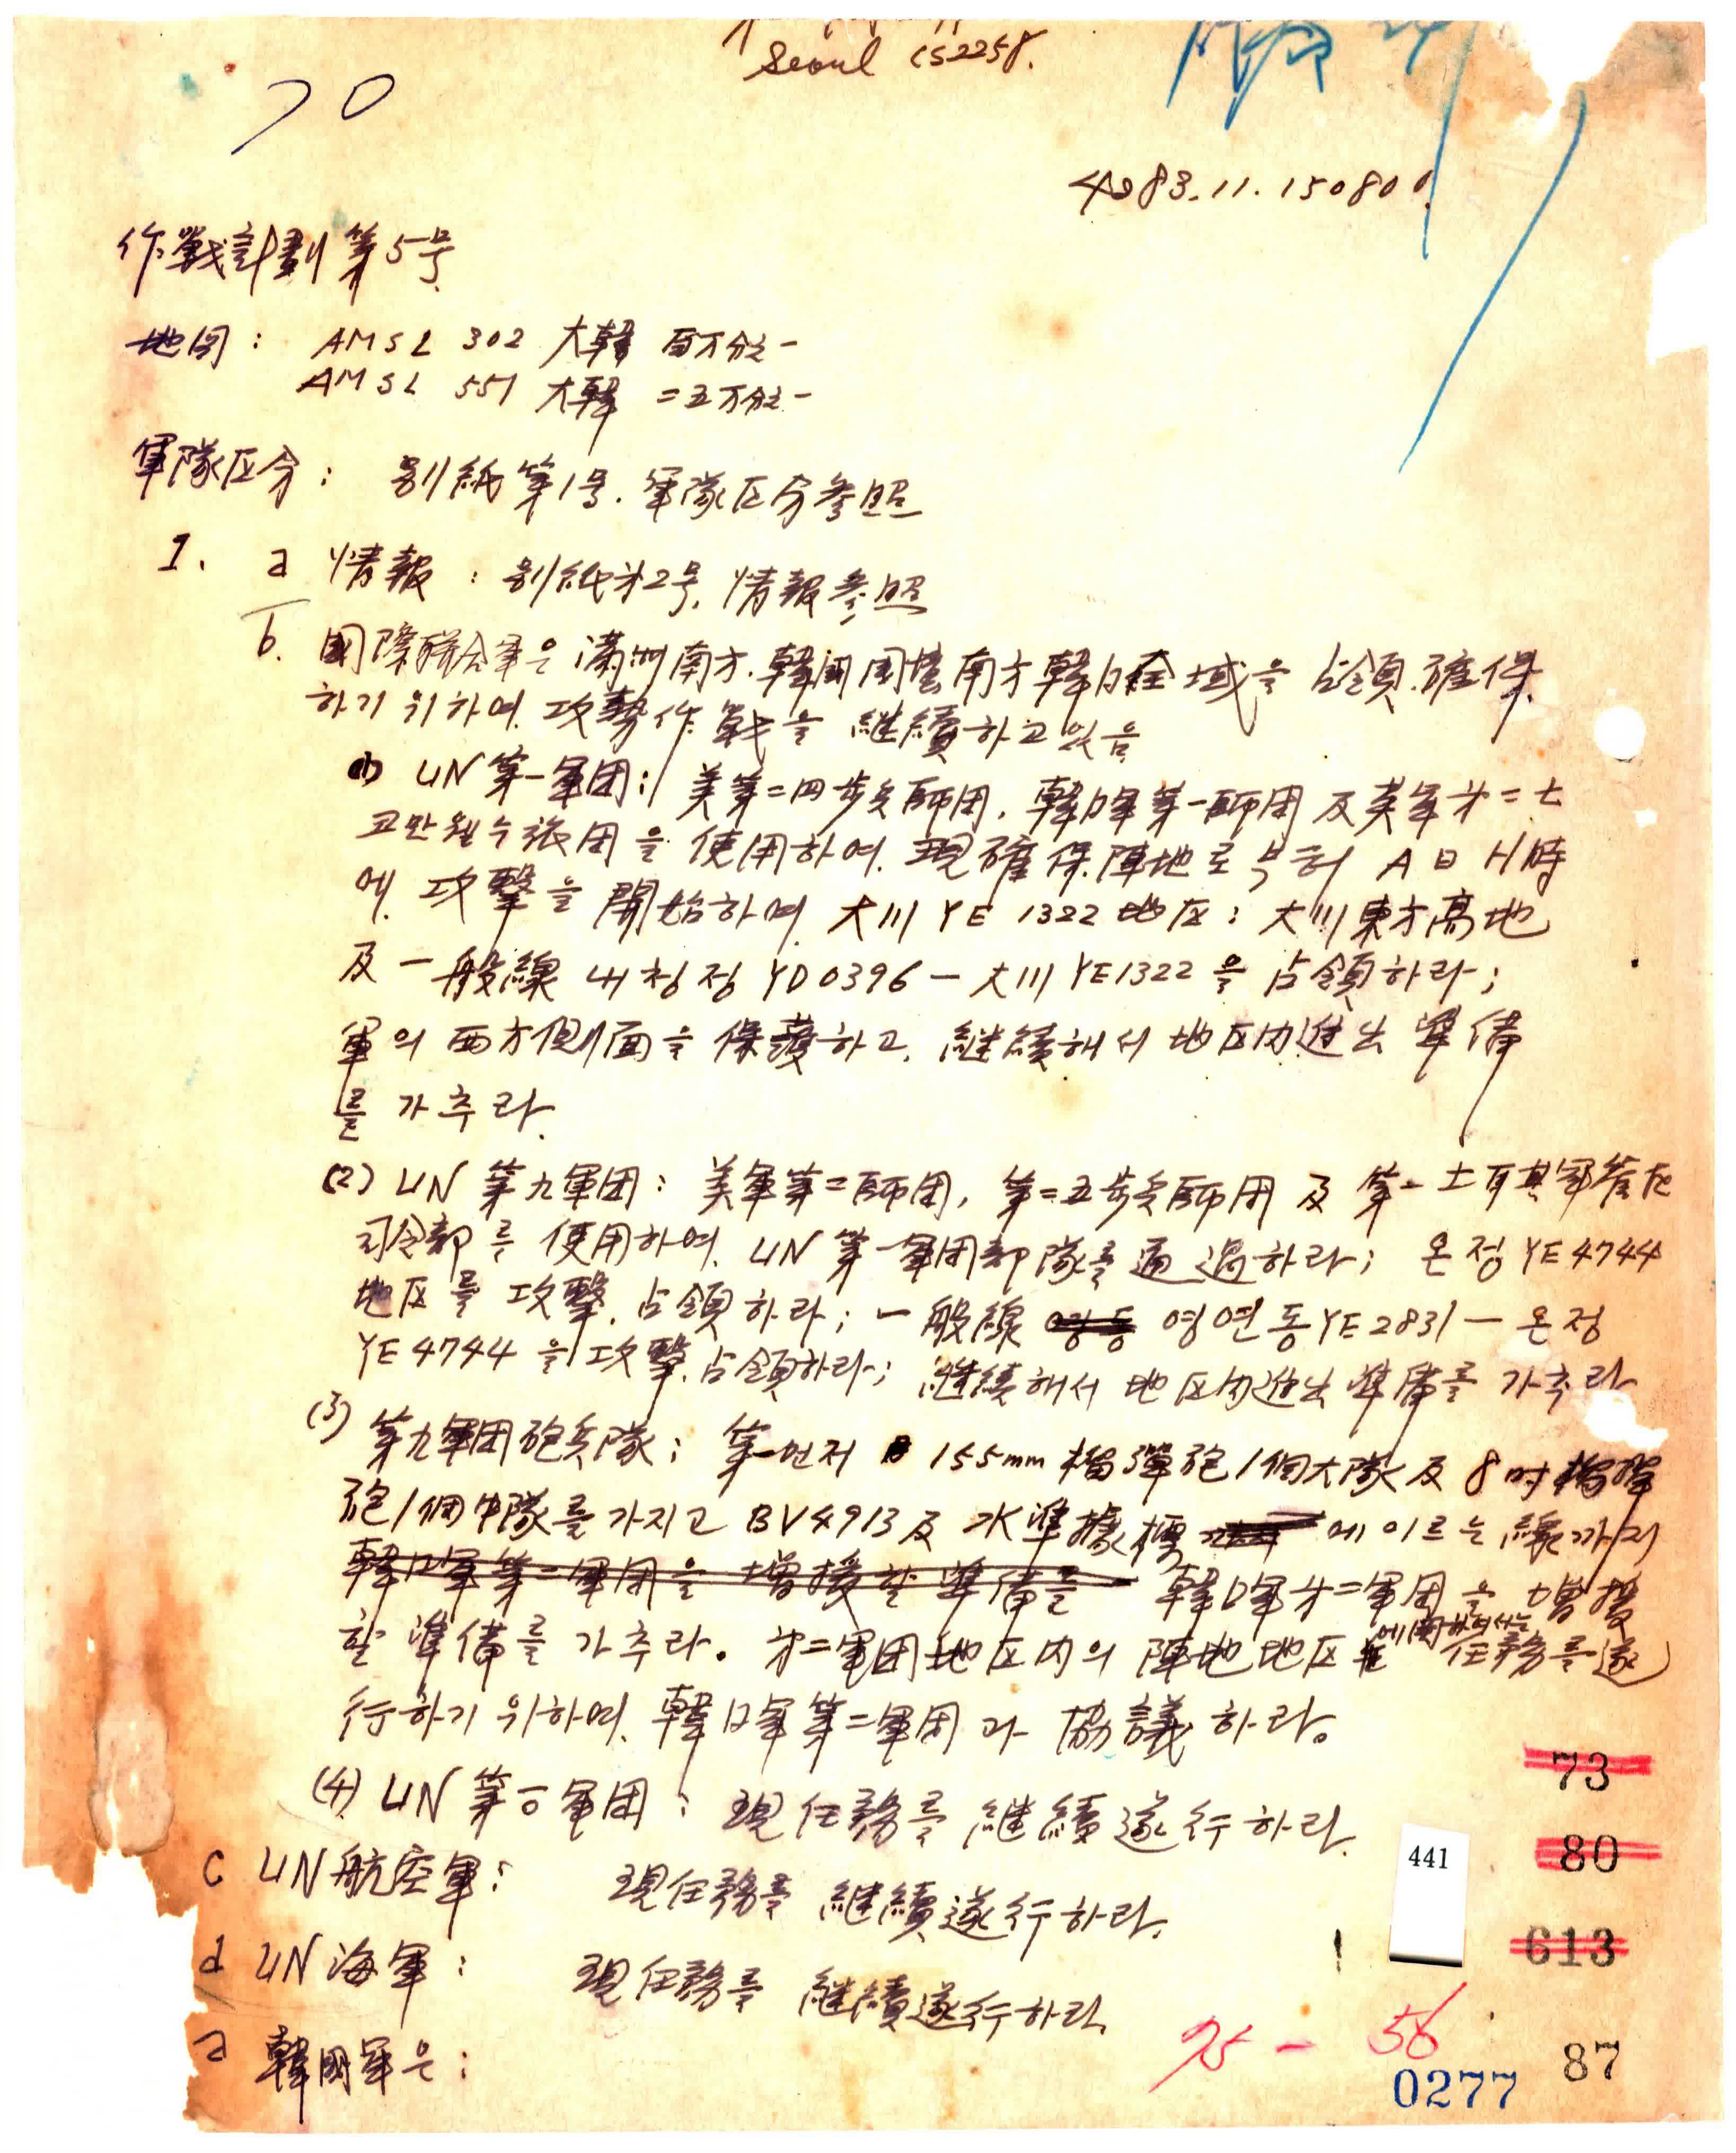 Seoul CS2258.
70
4283.11.150800
作戰計劃 第5号
地図: AMSL 302 大韓 百万分之一
AMSL 551 大韓 二五万分之一
軍隊区分: 別紙第1号. 軍隊区分參照
1. a 情報: 別紙才2号. 情報參照
b. 國際聯合軍은 滿洲南方. 韓國国境南方韓国全域을 占領.確保
하기 위하여. 攻勢作戰을 継續하고 있음
(1) UN第一軍団: 美第二四步兵師団, 韓国軍第一師団 及 英軍才二七
고만웰스旅団을 使用하여. 現確保陣地로부터 A日 H時
에 攻擊을 開始하여 大川 YE 1322 地区: 大川東方高地
及 一般線 내청정 YD0396 — 大川 YE1322을 占領하라;
軍의 西方側面을 保護하고. 継續해서 地区内進出 準備
를 가추라.
(2) UN 第九軍団: 美軍第二師団, 第二五步兵師団 及 第一土耳其軍
司令部를 使用하여. UN 第一軍団部隊를 通過하라; 온정 YE4744
地区를 攻擊.占領하라; 一般線 영동 영연동YE2831 — 온정
YE4744을 攻擊.占領하라; 継續해서 地区内進出 準備를 가추라
(3) 第九軍団砲兵隊: 第一먼저 155mm 榴彈砲1個大隊 及 8吋榴彈
砲1個中隊를 가지고 BV4913 及 水準據標 에 이르는 線까지
韓国軍第二軍団을 增援할 準備를 韓国軍才二軍団을 增援
할 準備를 가추라. 才二軍団地区内의 陣地地区에関하여서는 任務를 遂
行하기 위하여. 韓国軍第二軍団과 協議하라.
(4) UN 第十軍団: 現任務를 継續遂行하라.
c UN航空軍: 現任務를 継續遂行하라.
d UN海軍: 現任務를 継續遂行하라
a 韓國軍은:
73
80
441
613
75 - 56
0277
87